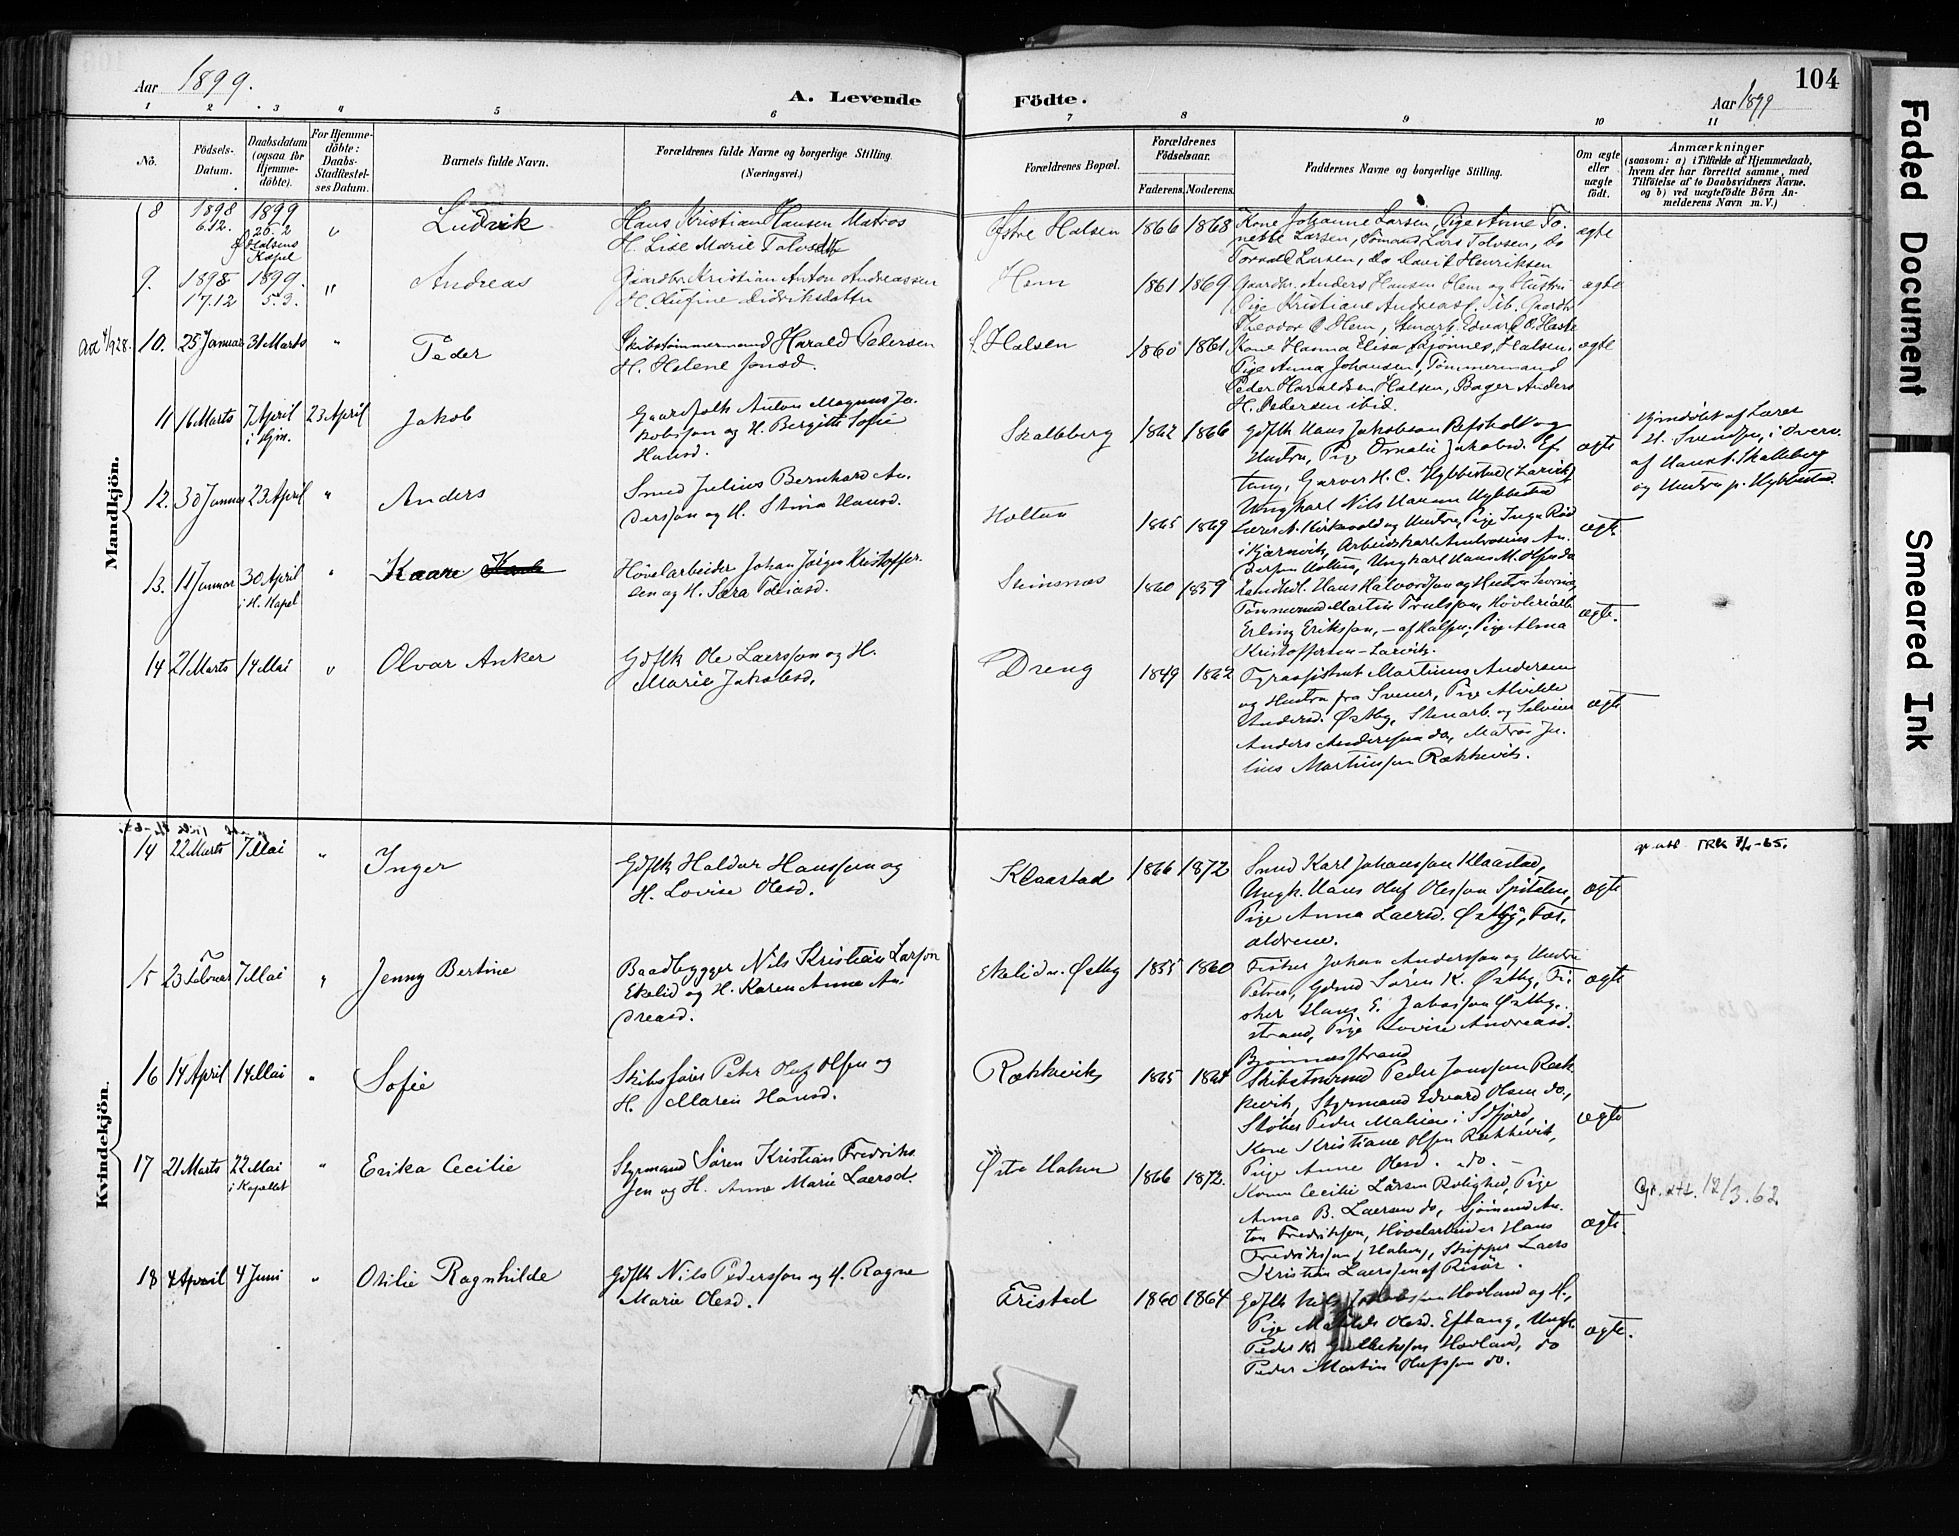 Aar 1899.
A. Levende
Födte.
104
Aar 1899
1 2 3 4 5 6 7 8 9 10 11
No.
Födsels-
Datum.
Daabsdatum
(ogsaa for
Hjemme-
döbte).
For Hjemme-
döbte:
Daabs-
Stadfæstel-
ses Datum.
Barnets fulde Navn.
Forældrenes fulde Navne og borgerlige Stilling.
(Næringsvei.)
Forældrenes Bopæl.
Forældrenes
Födselsaar.
Faderens. Moderens.
Faddernes Navne og borgerlige Stilling.
Om ægte
eller
uægte
födt.
Anmærkninger
(saasom: a) i Tilfælde af Hjemmedaab,
hvem der har forrettet samme, med
Tilföielse af to Daabsvidners Navne,
og b) ved uægtefödte Börn An-
melderens Navn m. V.)
Mandkjön.
8
1898
6.12.
1899
26.2
Halsens
Kapel
"
Ludvik
Hans Kristian Hansen Matros
H. Lise Marie
Østre Halsen
1866 1868
Kone Johanne Larsen, Pige Anne To-
nette Larsen, Sømand Lars Tolvsen, do
Torvald Larsen, do David Henriksen
ægte
9.
1898
17.12
1899.
5.3.
"
Andreas
Gaardbr. Kristian Anton Andreassen
H. Didriksdatter
Hem
1861 1869
Gaardbr. Anders Hansen Hem og Hustru
Pige Kristiane Andreasd. ib. Gaardbr.
Theodor O. Hem, Stenarb. Edvard O. Hask
ægte
10. 25 Januar 31 Marts "
Peder
Skibstømmermand Harald Pedersen
H. Helene Jonsd.
Halsen
1860 1861
Kone Hanna Elisa Halsen,
Pige Anna Johansen, Tømmermand
Peder Haraldsen Halsen, Bager Anders
H. Pedersen ibid.
ægte
11 16 Marts 7 April
i Hjm.
23 April
Jakob
Gaardfolk Anton Magnus Ja-
kobsson og H. Bergitte Sofie
Hansd.
Skalleberg
1862 1866
Gdflk Hans Jakobson og
Hustru, Pige Jakobsd. Ef-
tang, Garver H. C. Hybbestad (Larvik)
Ungkarl Nils Hybbestad
ægte
Hjemdøbt af Lærer
H. Svendsen, i Overv.
af Hans A. Skalleberg
og Hustru p. Hybbestad.
12. 30 Januar 23 April "
Anders
Smed Julius Bernhard An-
dersson og H. Stina Hansd.
Holtan
1865 1869
Lærer A. Kirkevold og Hustru, Pige Inga Rød
i Kjærsvik, Arbeidskarl Ambrosius An-
dersen Holtan, Ungkarl Hans M. Olsen do
ægte
13. 11 Januar 30 April
i H. Kapel
"
Kaare
Høvelarbeider Johan Jørgen Kristoffer-
sen og H. Sara Tobiasd.
Steinsnæs
1860 1859
Landhdl. Hans Halvorsson og Hustru
Tømmermd Martin Truelsson, Høvleriarb.
Erling Eriksson, - af Halsen, Pige Alma
Kristoffersen - Larvik.
ægte.
14 21 Marts 14 Mai "
Olvar Anker
Gdflk Ole Laersson og H.
Marie Jakobsd.
Dreng
1849 1862
Fyrassistent Martinius Andersen
og Hustru fra Svenner, Pige
Andersd. Østby, Stenarb. og Selveier
Anders Anderssen do, Matros Ju-
lius Martinsson Rækkevik.
ægte
Kvindekjön.
14 22 Marts 7 Mai "
Inger
Gdflk Haldur Hanssen og
H. Lovise Olesd.
Klaastad
1866 1872
Smed Karl Johansson Klaastad,
Ungk. Hans Oluf Olesson
Pige Anna Laersd. Østby, For-
ældrene.
ægte
15 23 Februar 7 Mai "
Jenny Bertine
Baadbygger Nils Kristian Larson
Ekelid og H. Karen Anne An-
dreasd.
Ekelid u. Østby
1855 1860
Fisker Johan Andersson og Hustru
Petrea, Gdmd Søren K. Østby, Fi-
sker Hans E. Jakosson Østby-
strand, Pige Lovise Andreasd.
Bjønnesstrand
ægte
16 14 April 14 Mai "
Sofie
Skibsfører Peter Oluf Olsen og
H. Maren Hansd.
Rækkevik
1865 1864
Skibstmrmd Peder Jonssen Ræk-
kevik, Styrmand Edvard Olsen do,
Peder i Sdfjord,
Kone Kristiane Olsen Rækkevik,
Pige Anne Olesd. do.
ægte
17 21 Marts 22 Mai
i Kapellet
"
Erika Cecilie
Styrmand Søren Kristian Fredriks-
sen og H. Anne Marie Laersd.
Østre Halsen
1866 1872.
Konen Cecilie Larsen Rolighed, Pige
Anna B. Laersen do, Sjømand An-
ton Fredriksen, Høvelarbeider Hans
Fredriksen, Halsen, Skipper Laers
Kristian Laerssen af Risør.
ægte
12/3.62
18 4 April 4 Juni "
Otilie Ragnhilde
Gdflk Nils Pedersson og H. Ragne
Marie Olesd.
Fristad
1860 1864
Gdflk Nils Hovland og H.,
Pige Matilde Olesd. Eftang, Ungk.
Peder Kr. Gulliksson Hovland, do
Peder Martin Olufssen do.
ægte.
Faded Document
Smeared Ink